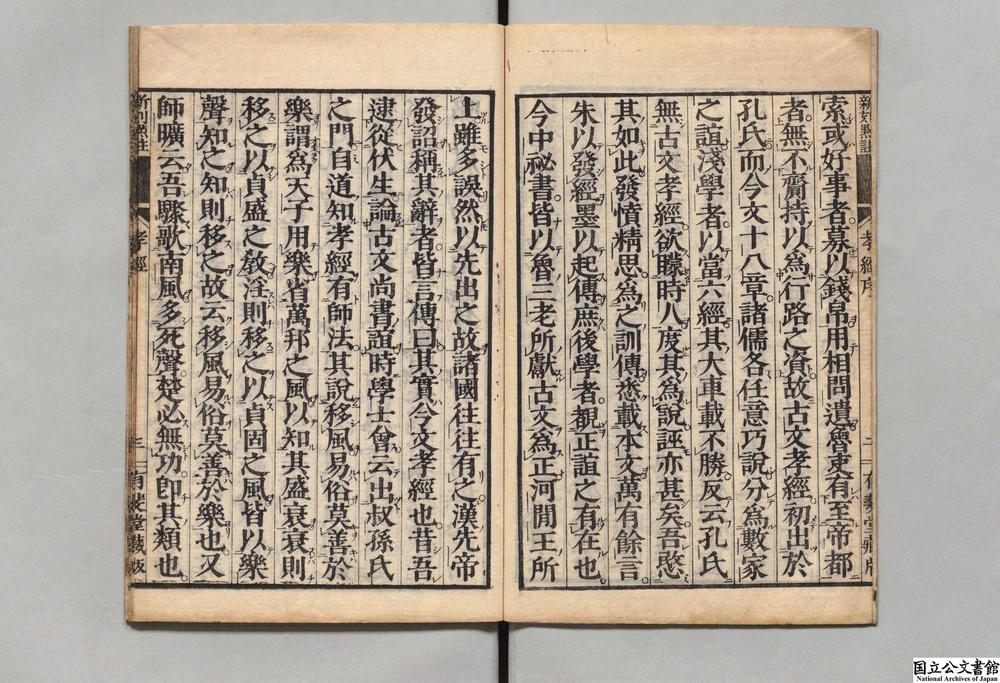 索或好事者募以錢帛用相問遺魯吏有至帝都
者無不齎持以為行路之資故古文孝經初出於
孔氏而今文十八章諸儒各任意巧說分為數家
之誼淺學者以當六經其大車載不勝反云孔氏
無古文孝經欲矇時人度其為說誣亦甚矣吾愍
其如此發憤精思為之訓傳悉載本文萬有餘言
朱以發經墨以起傳庶後學者覩正誼之有在也
今中祕書皆以魯三老所獻古文為正河閒王所
上雖多誤然以先出之故諸國往往有之漢先帝
發詔稱其辭者皆言傳曰其實今文孝經也昔吾
逮從伏生論古文尚書誼時學士會云出叔孫氏
之門自道知孝經有師法其說移風易俗莫善於
樂謂為天子用樂省萬邦之風以知其盛衰衰則
移之以貞盛之敎淫則移之以貞固之風皆以樂
聲知之知則移之故云移風易俗莫善於樂也又
師曠云吾驟歌南風多死聲楚必無功卽其類也
孝經序
孝經
二
有裴堂藏版
国立公文書館
National Archives of Japan